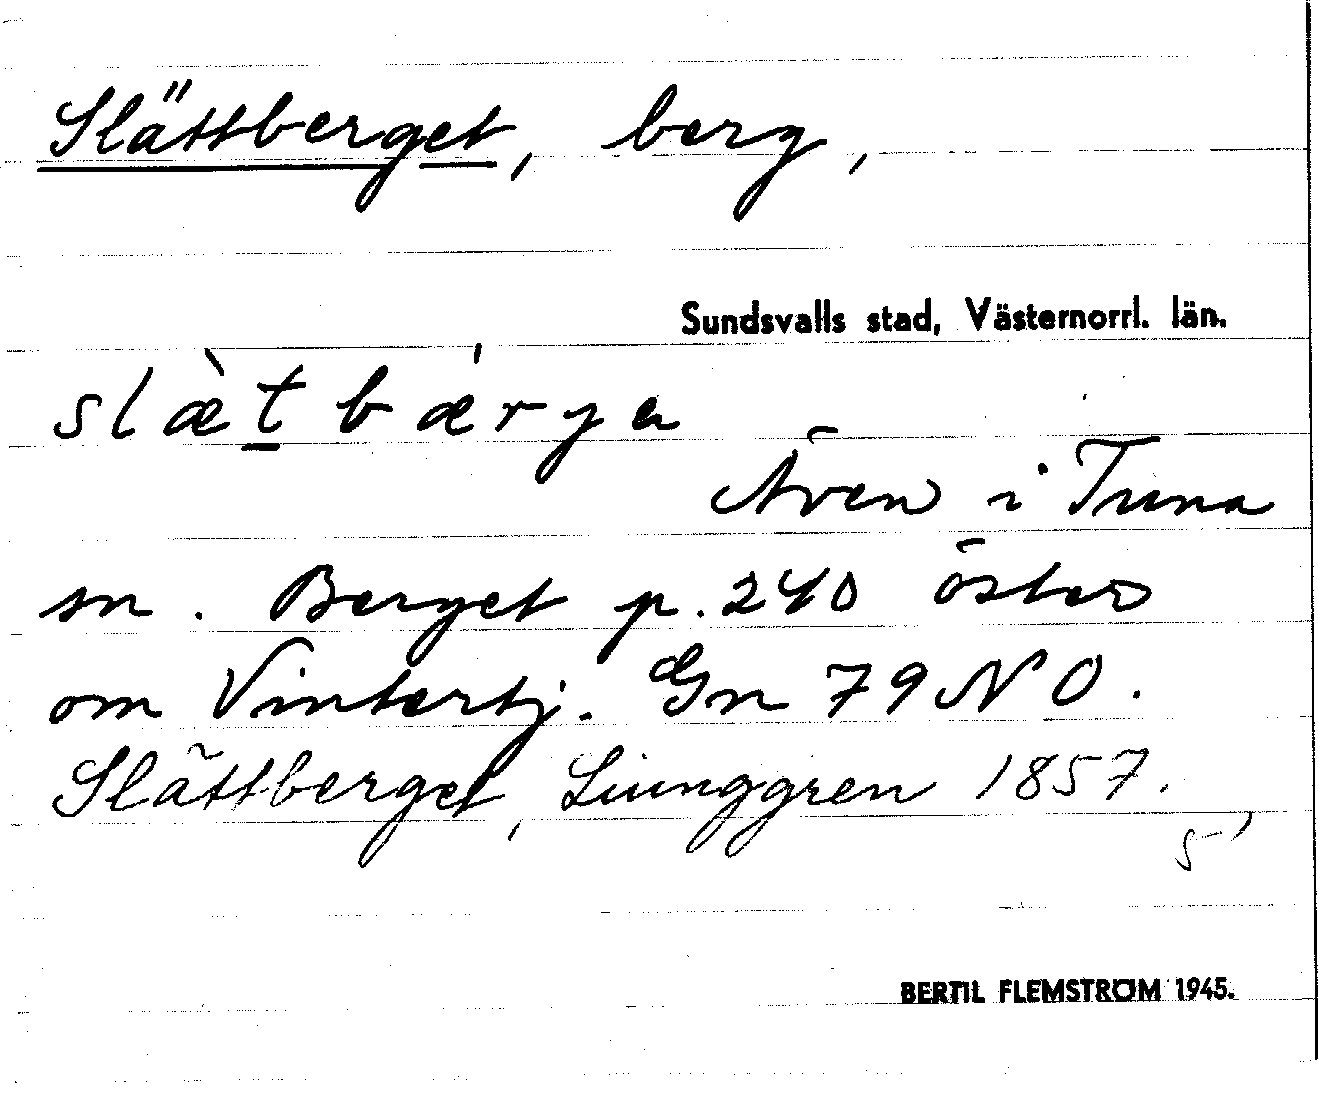 Slättberget, berg,
Sundsvalls stad, Västernorrl. län.
slæ̀t̲bǽrya
Även i Tuna
sn. Berget p. 240 öster
om Vintertj. Gn 79 NO.
Slättberget, Liunggren 1857.
BERTIL FLEMSTRÖM 1945.